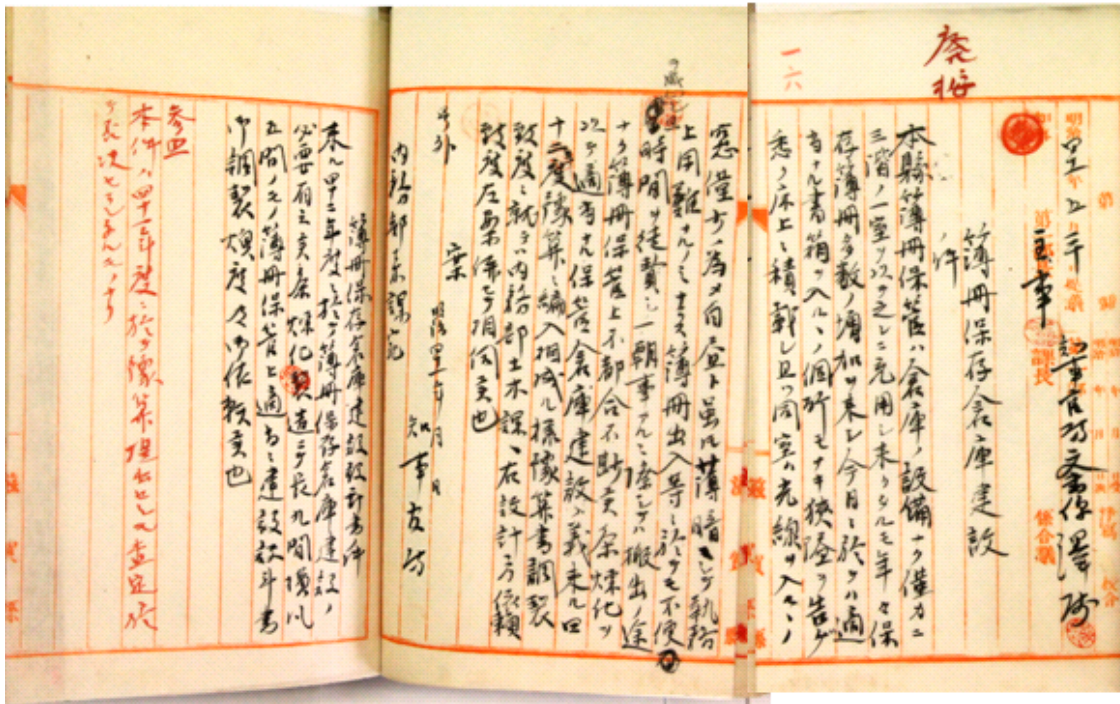 廃按
一六
明治四十一年五月
主事
課長
係合議
簿冊保存倉庫建設
ノ件
本縣簿冊保管ハ倉庫ノ設備ナク僅カニ
三階ノ一室ヲ以テ之レニ充用シ来リタルモ年々保
存簿冊多数ノ増加ヲ来シ今日ニ於テハ適
当ナル書箱ヲ入ルヽノ個所モナキ狭隘ヲ告ゲ
悉ク床上ニ積載シ且ツ同室ハ光線ヲ入ルヽノ
窓僅少ノ為メ白昼ト雖モ薄暗ニシテ執務
上困難ナルノミナラス簿冊出入等ニ於テモ不便
時間ヲ徒費シ一朝事アルニ際シテハ搬出ノ途
ナク簿冊保管上不都合不尠候条煉化ヲ
以テ適当ナル保管倉庫建設ノ義来ル四
十二年度豫算ニ編入相成ル様豫算書調製
致度ニ就テハ内務部土木課ヘ左設計方依頼
致度左案併セテ相伺候也
案
明治四十一年 月 日
知事官房
内務部土木課宛
簿冊保存倉庫建設設計書件
来ル四十二年度ニ於テ簿冊保存倉庫建設ノ
必要有之候条煉化製造ニテ長九間横
五間ノモノ簿冊保管上適当ニ建設設計書
御調製煩度及御依頼候也
参照
本件ハ四十二年度ニ於テ豫算提出セシモ査定